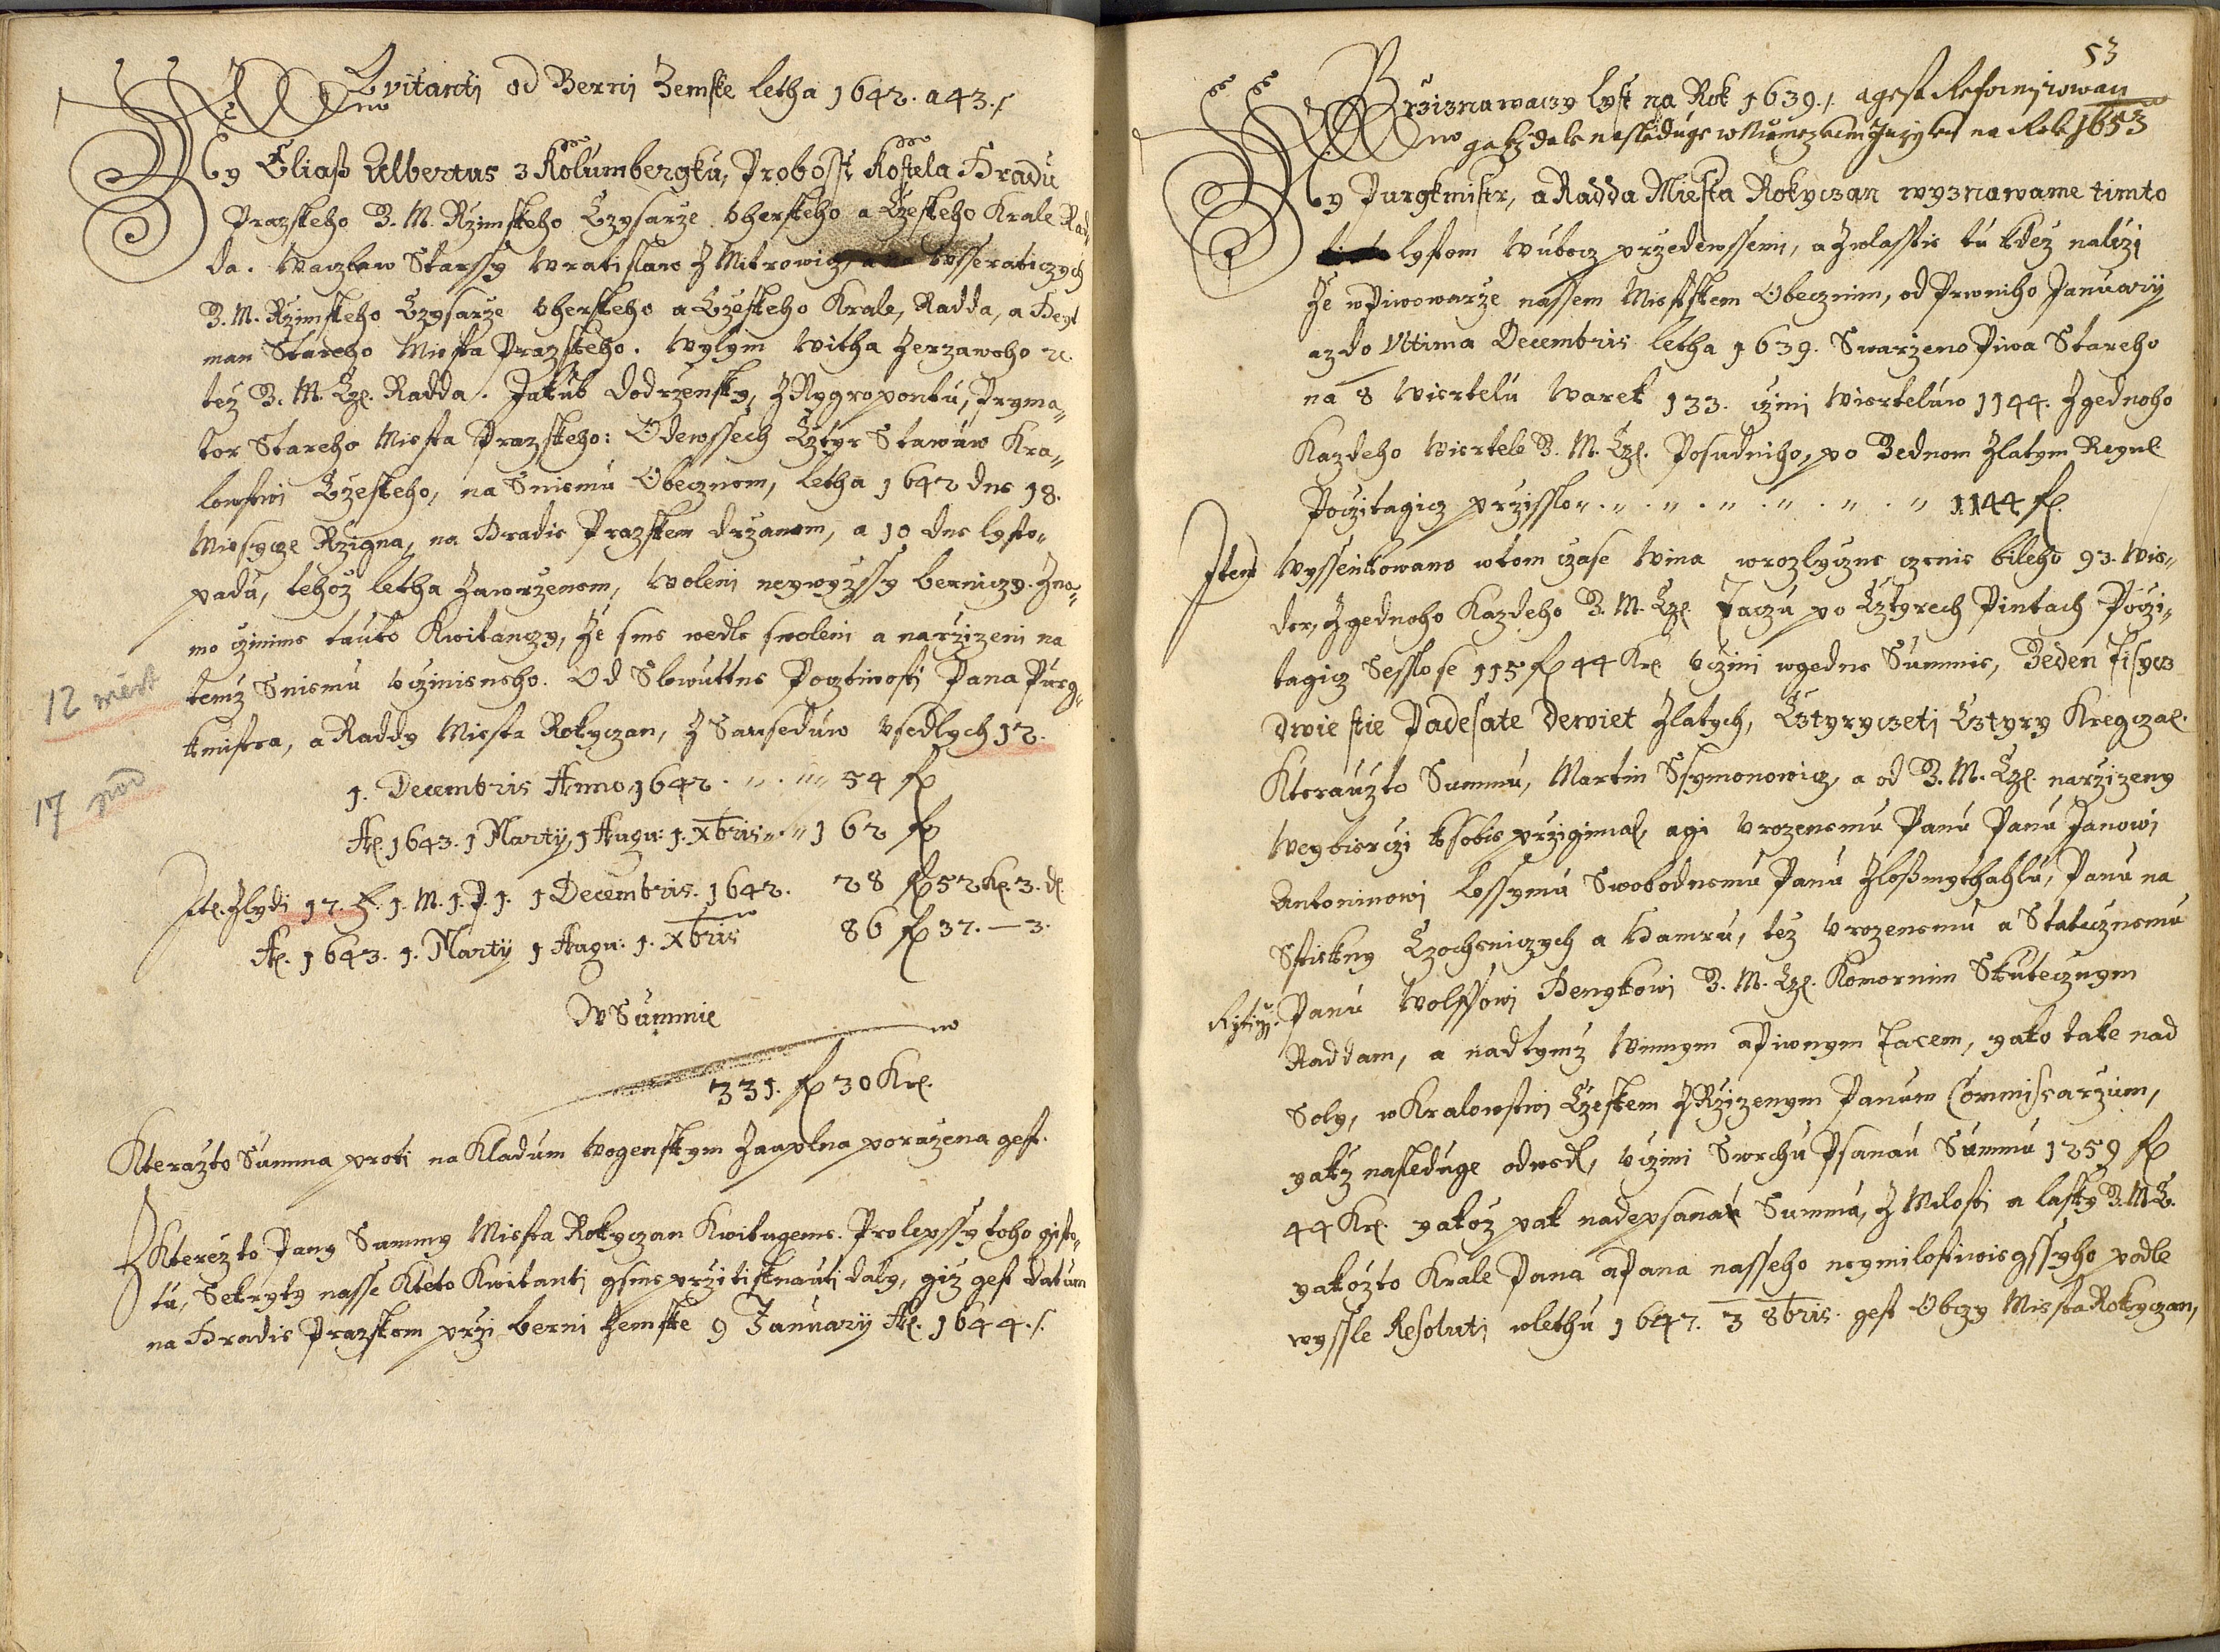 Kvitanti od Berni Zemske letha 1642. a 43./.
My Eliaß Albertus z Kolumbergku, Probosst Kostela Hradu
Prazskeho G. M. Rzimskeho Czysarze Vherskeho a Czeskeho Krale Rad
da. Waczlaw Starssy Wratislaw z Mitrowicz, a na Wsseraticzych
G. M. Rzimskeho Czysarze Vherskeho a Czeskeho Krale, Radda, a Heyt
man Stareho Miesta Prazskeho. Wylym Witha Zerzaweho ꝛc.
téz G. M. Cz. Radda. Jakub Dodrzensky, z Nygropontu, Pryma„
tor Stareho Miesta Prazskeho: Odewssech Cztyr Stawuw Kra„
lowstwi Czeskeho, na Sniemu Obecznem, letha 1642 dne 18.
Miesycze Rzigna, na Hradie Prazskem drzanem, a 10 dne lysto„
padu, tehoz letha Zawrzenem, Woleni neywyzssy berniczy. Zna„
mo czinime tauto Kwitanczy, Ze sme wedle swoleni a narzizeni na
temz Sniemu vczinieneho. Od Slowuttne Pocztiwosti Pana Purg„
kmistra, a Raddy Miesta Rokyczan, z Sauseduw Vsedlych 12.
12 měšt
1. Decembris Anno 1642 . „ . „„ 54 fl
17 pod
A. 1643. 1 Marty, 1 Augu: 1. Xbris „ „ 162 fl
Ite. z lydi 17. 1. M. 1. P. 1. 1 Decembris. 1642. 28 fl 52 Kr. 3. d.
A. 1643. 1. Marty 1 Augu: 1. Xbris 86 fl 37. — 3.
W Summie
331. fl 30 Kr.
Kterazto Summa proti na Kladum Wogenskym Zauplna porazena gest.
Kterézto Pany Summy Miesta Rokyczan Kwitugeme. Prolepssy toho gisto„
tu, Sekryty nasse Kteto Kwitanti gsme przitisknauti daly, giz gest datum
na Hradie Prazskem przi berni Zemske 9 January A. 1644./.
53
Prziznawaczy lyst na Rok 1639./. a gest Reformirowan
gakz dale nasleduge w Niemeczkem Jazyku na Rok 1653
My Purgkmistr, a Radda Miesta Rokyczan wyznawame timto
lystem Wubecz przedewssemi, a Zwlasstie tu kdéz nalezi
Ze w Piwowarze nassem Miestskem Obecznim, od Prwniho January
az do Vltima Decembris letha 1639. Swarzeno Piwa Stareho
na 8 Wiertelu Warek 133. czini Wierteluw 1144. Z gednoho
Kazdeho Wiertele G. M. Cz. Posudniho, po Gednom Zlatym Reyn
Poczitagicz przisslo „ . „ . „ . „ . „ . „ . „ 1144 fl.
Item Wyssenkowano w tom czase Wina w rozlyczne czenie bileho 93. Wie„
der, Z gednoho Kazdeho G. M. Cz. Taczu po Cztyrech Pintach Poczi„
tagicz Sesslo se 115 fl 44 Kr. vczini w gedne Summie, Geden Tisycz
dwie stie Padesate Dewiet Zlatych, Cztyryczeti Cztyry Kregczar.
Kterauzto Summu, Martin Ssymonowicz, a od G. M. Cz. narzizeny
Weybierczi k sobie przigimal, a gi Vrozenemu Panu Panu Janowi
Antoninowi Lossymu Swobodnemu Panu z Loßmythahlu, Panu na
Sstiekny Czocheniczych a Hamru, téz Vrozenemu a Statecznemu
Rytirzi. Panu Wolffowi Henykowi G. M. Cz. Komornim Skutecznym
Raddam, a nad tymz Winnym a Piwnym Tacem, yako take nad
Soly, w Kralowstwi Czeskem Z Rzizenym Panum Commissarzum,
yakz nasleduge odwedl, vczini Swrchu Psanau Summu 1259 fl
44 Kr. yakoz pak nadepsanau Summu, z Milosti a lasky G. M. C.
yakozto Krale Pana a Pana nasseho neymilostiwiegssyho podle
wyssle Resoluti w lethu 1647. 3 8bris. gest Obczy Miesta Rokyczan,